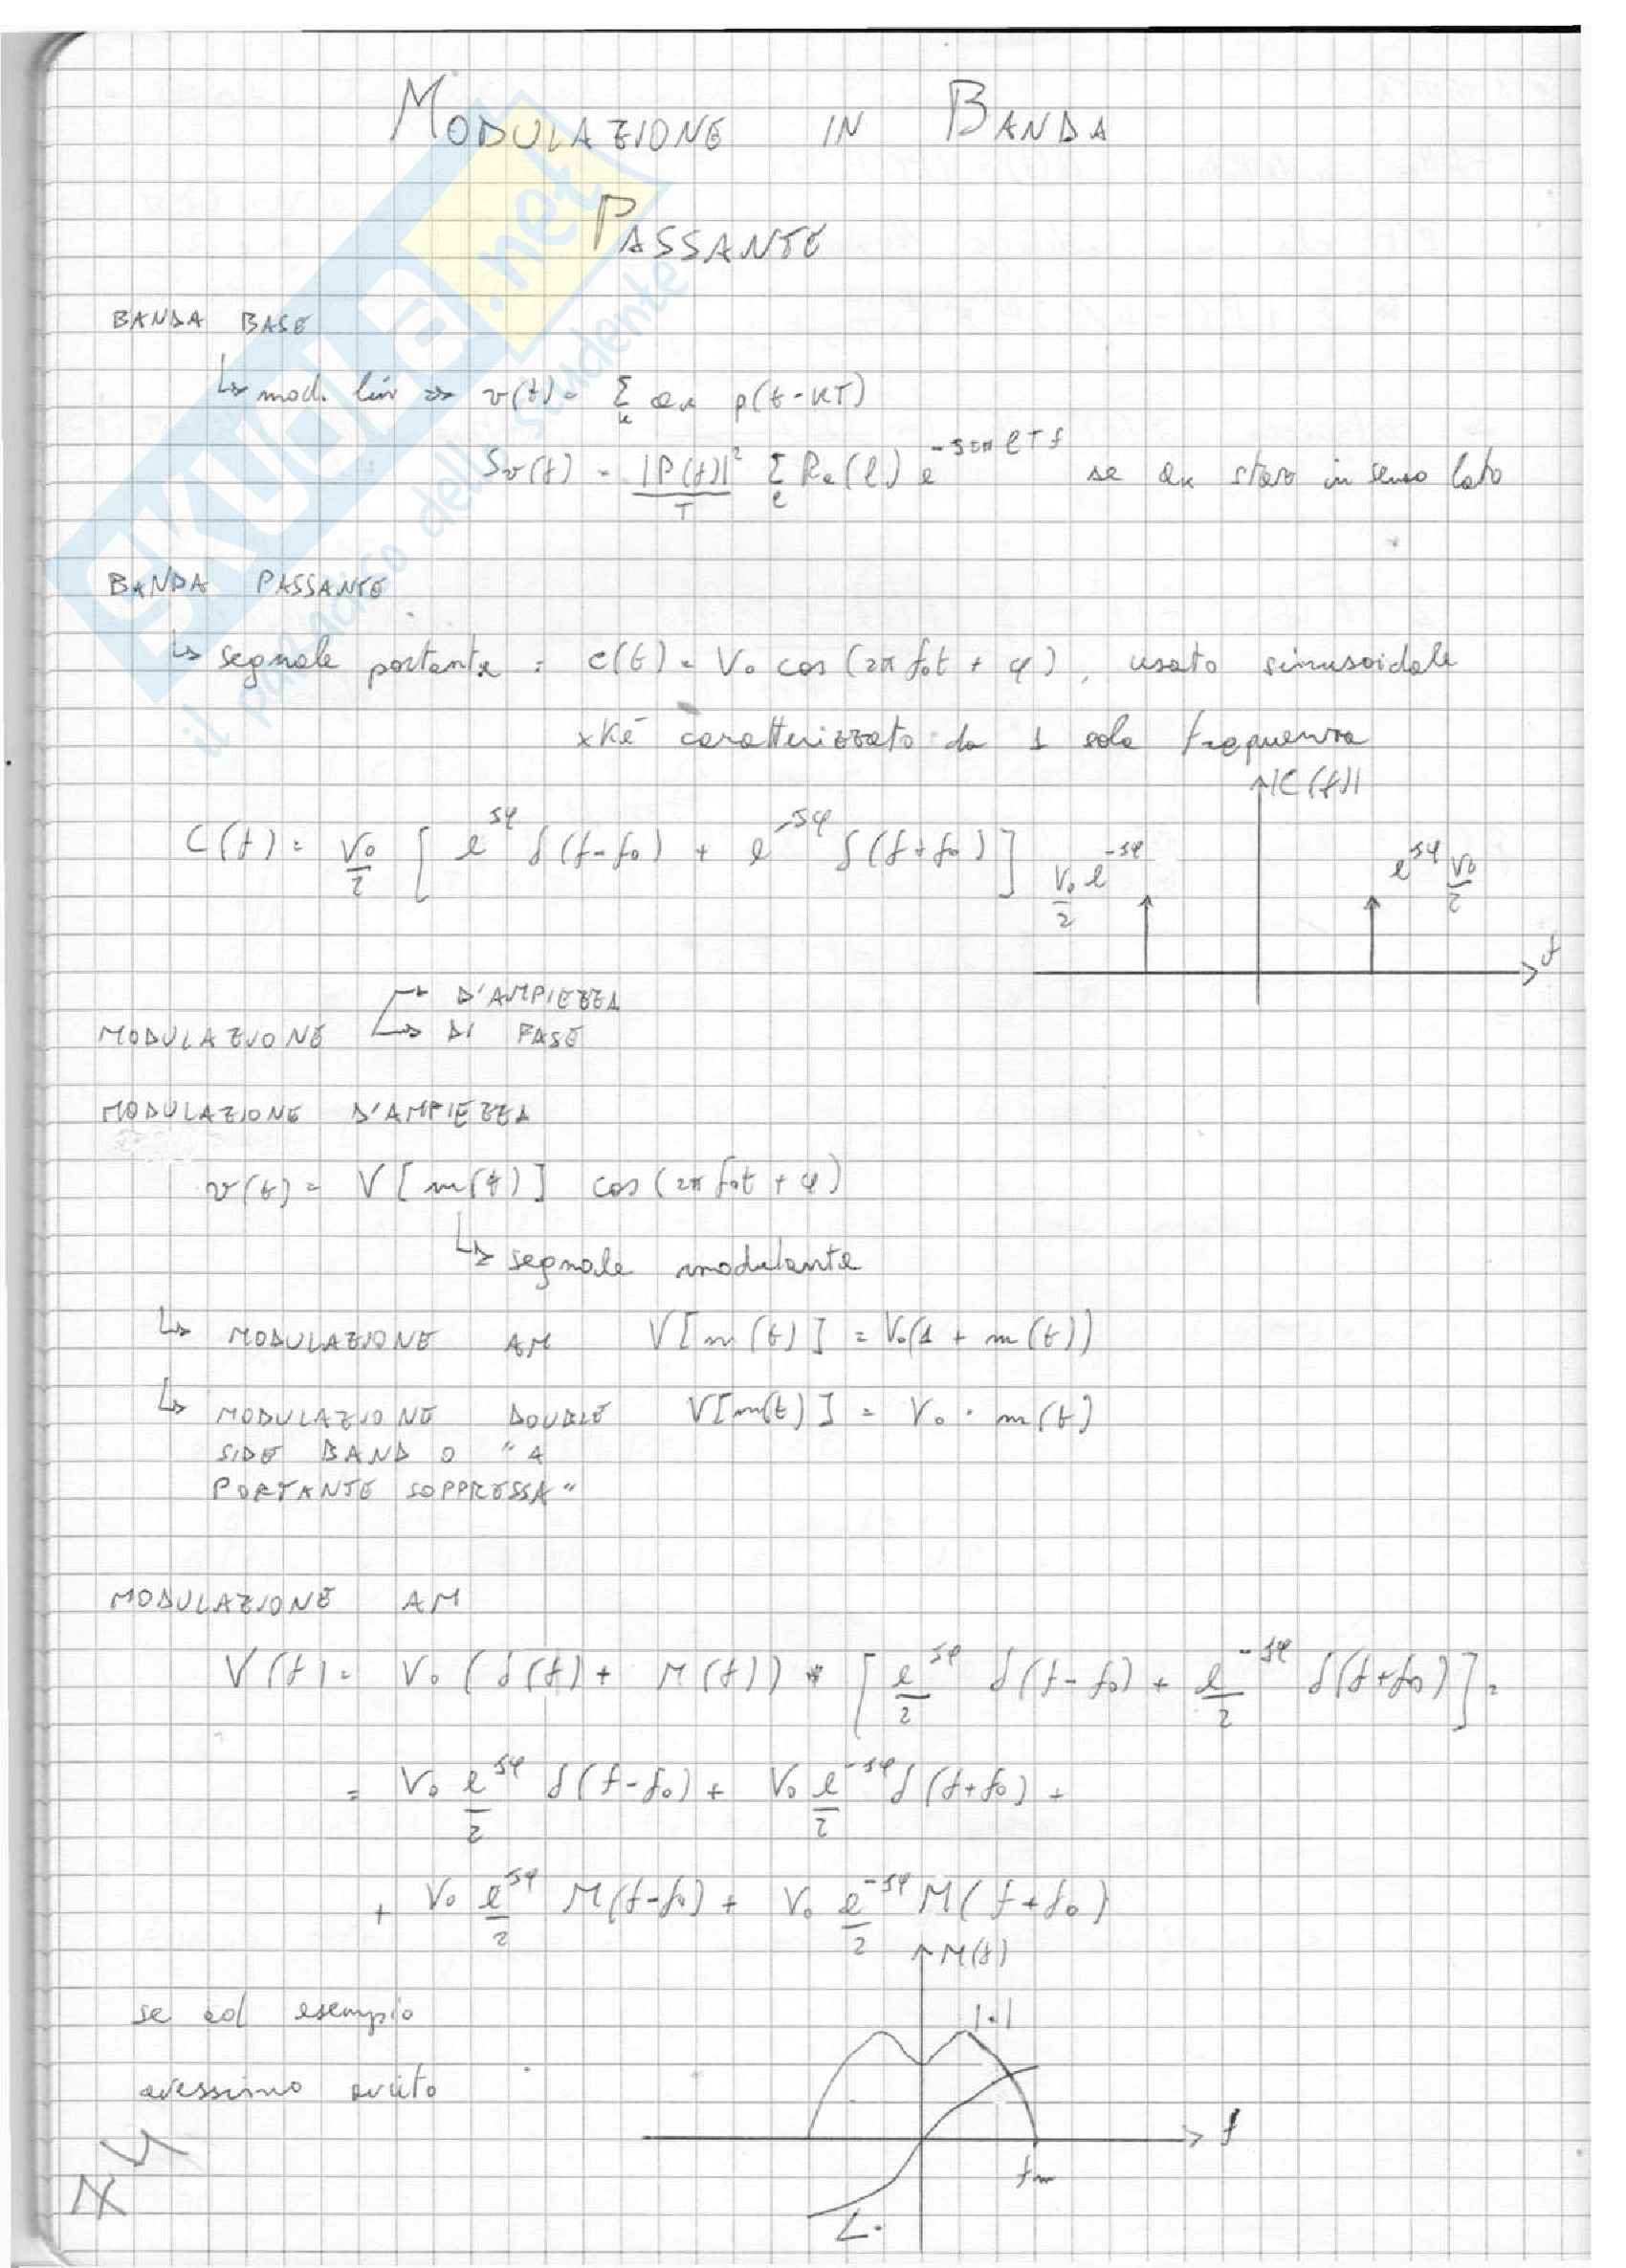 MODULAZIONE IN BANDA
PASSANTE
SKUOLA.net
il paradiso dello studente
BANDA BASE
↳ mod. lin ⇒ v(t) = Σ_k a_k p(t-kT)
S_v(f) = |P(f)|²/T Σ_l R_a(l) e^{-j2πlTf} se a_k staz in senso lato
BANDA PASSANTE
↳ segnale portante = c(t) = V₀ cos(2πf₀t + φ), usato sinusoidale
xKé caratterizzato da 1 sola frequenza
|C(f)|
C(f) = V₀/2 [ e^{jφ} δ(f-f₀) + e^{-jφ} δ(f+f₀) ]
V₀/2 e^{-jφ} e^{jφ} V₀/2
f
→ D'AMPIEZZA
MODULAZIONE → DI FASE
MODULAZIONE D'AMPIEZZA
v(t) = V[m(t)] cos(2πf₀t + φ)
↳ segnale modulante
↳ MODULAZIONE AM V[m(t)] = V₀(1 + m(t))
↳ MODULAZIONE DOUBLE V[m(t)] = V₀ · m(t)
SIDE BAND O "A
PORTANTE SOPPRESSA"
MODULAZIONE AM
V(f) = V₀ (δ(f) + M(f)) * [ e^{jφ}/2 δ(f-f₀) + e^{-jφ}/2 δ(f+f₀) ] =
= V₀ e^{jφ}/2 δ(f-f₀) + V₀ e^{-jφ}/2 δ(f+f₀) +
+ V₀ e^{jφ}/2 M(f-f₀) + V₀ e^{-jφ}/2 M(f+f₀)
M(f)
se ad esempio
|·|
avessimo avuto
f
f_m
∠·